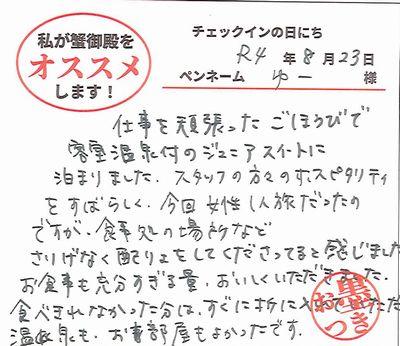 私が蟹御殿を
オススメ
します！
チェックインの日にち
R4 年 8 月 23 日
ペンネーム ゆー 様
仕事を頑張った ごほうびで
客室温泉付のジュニアスイートに
泊まりました．スタッフの方々のホスピタリティ
をすばらしく、今回女性1人旅だったの
ですが、食事処の場所など
さりげなく配りょをしてくださってると感じました
お食事も充分すぎる量、おいしくいただきました．
食べきれなかった分は、すぐに折に入れて
温泉も、お事部屋もよかったです．